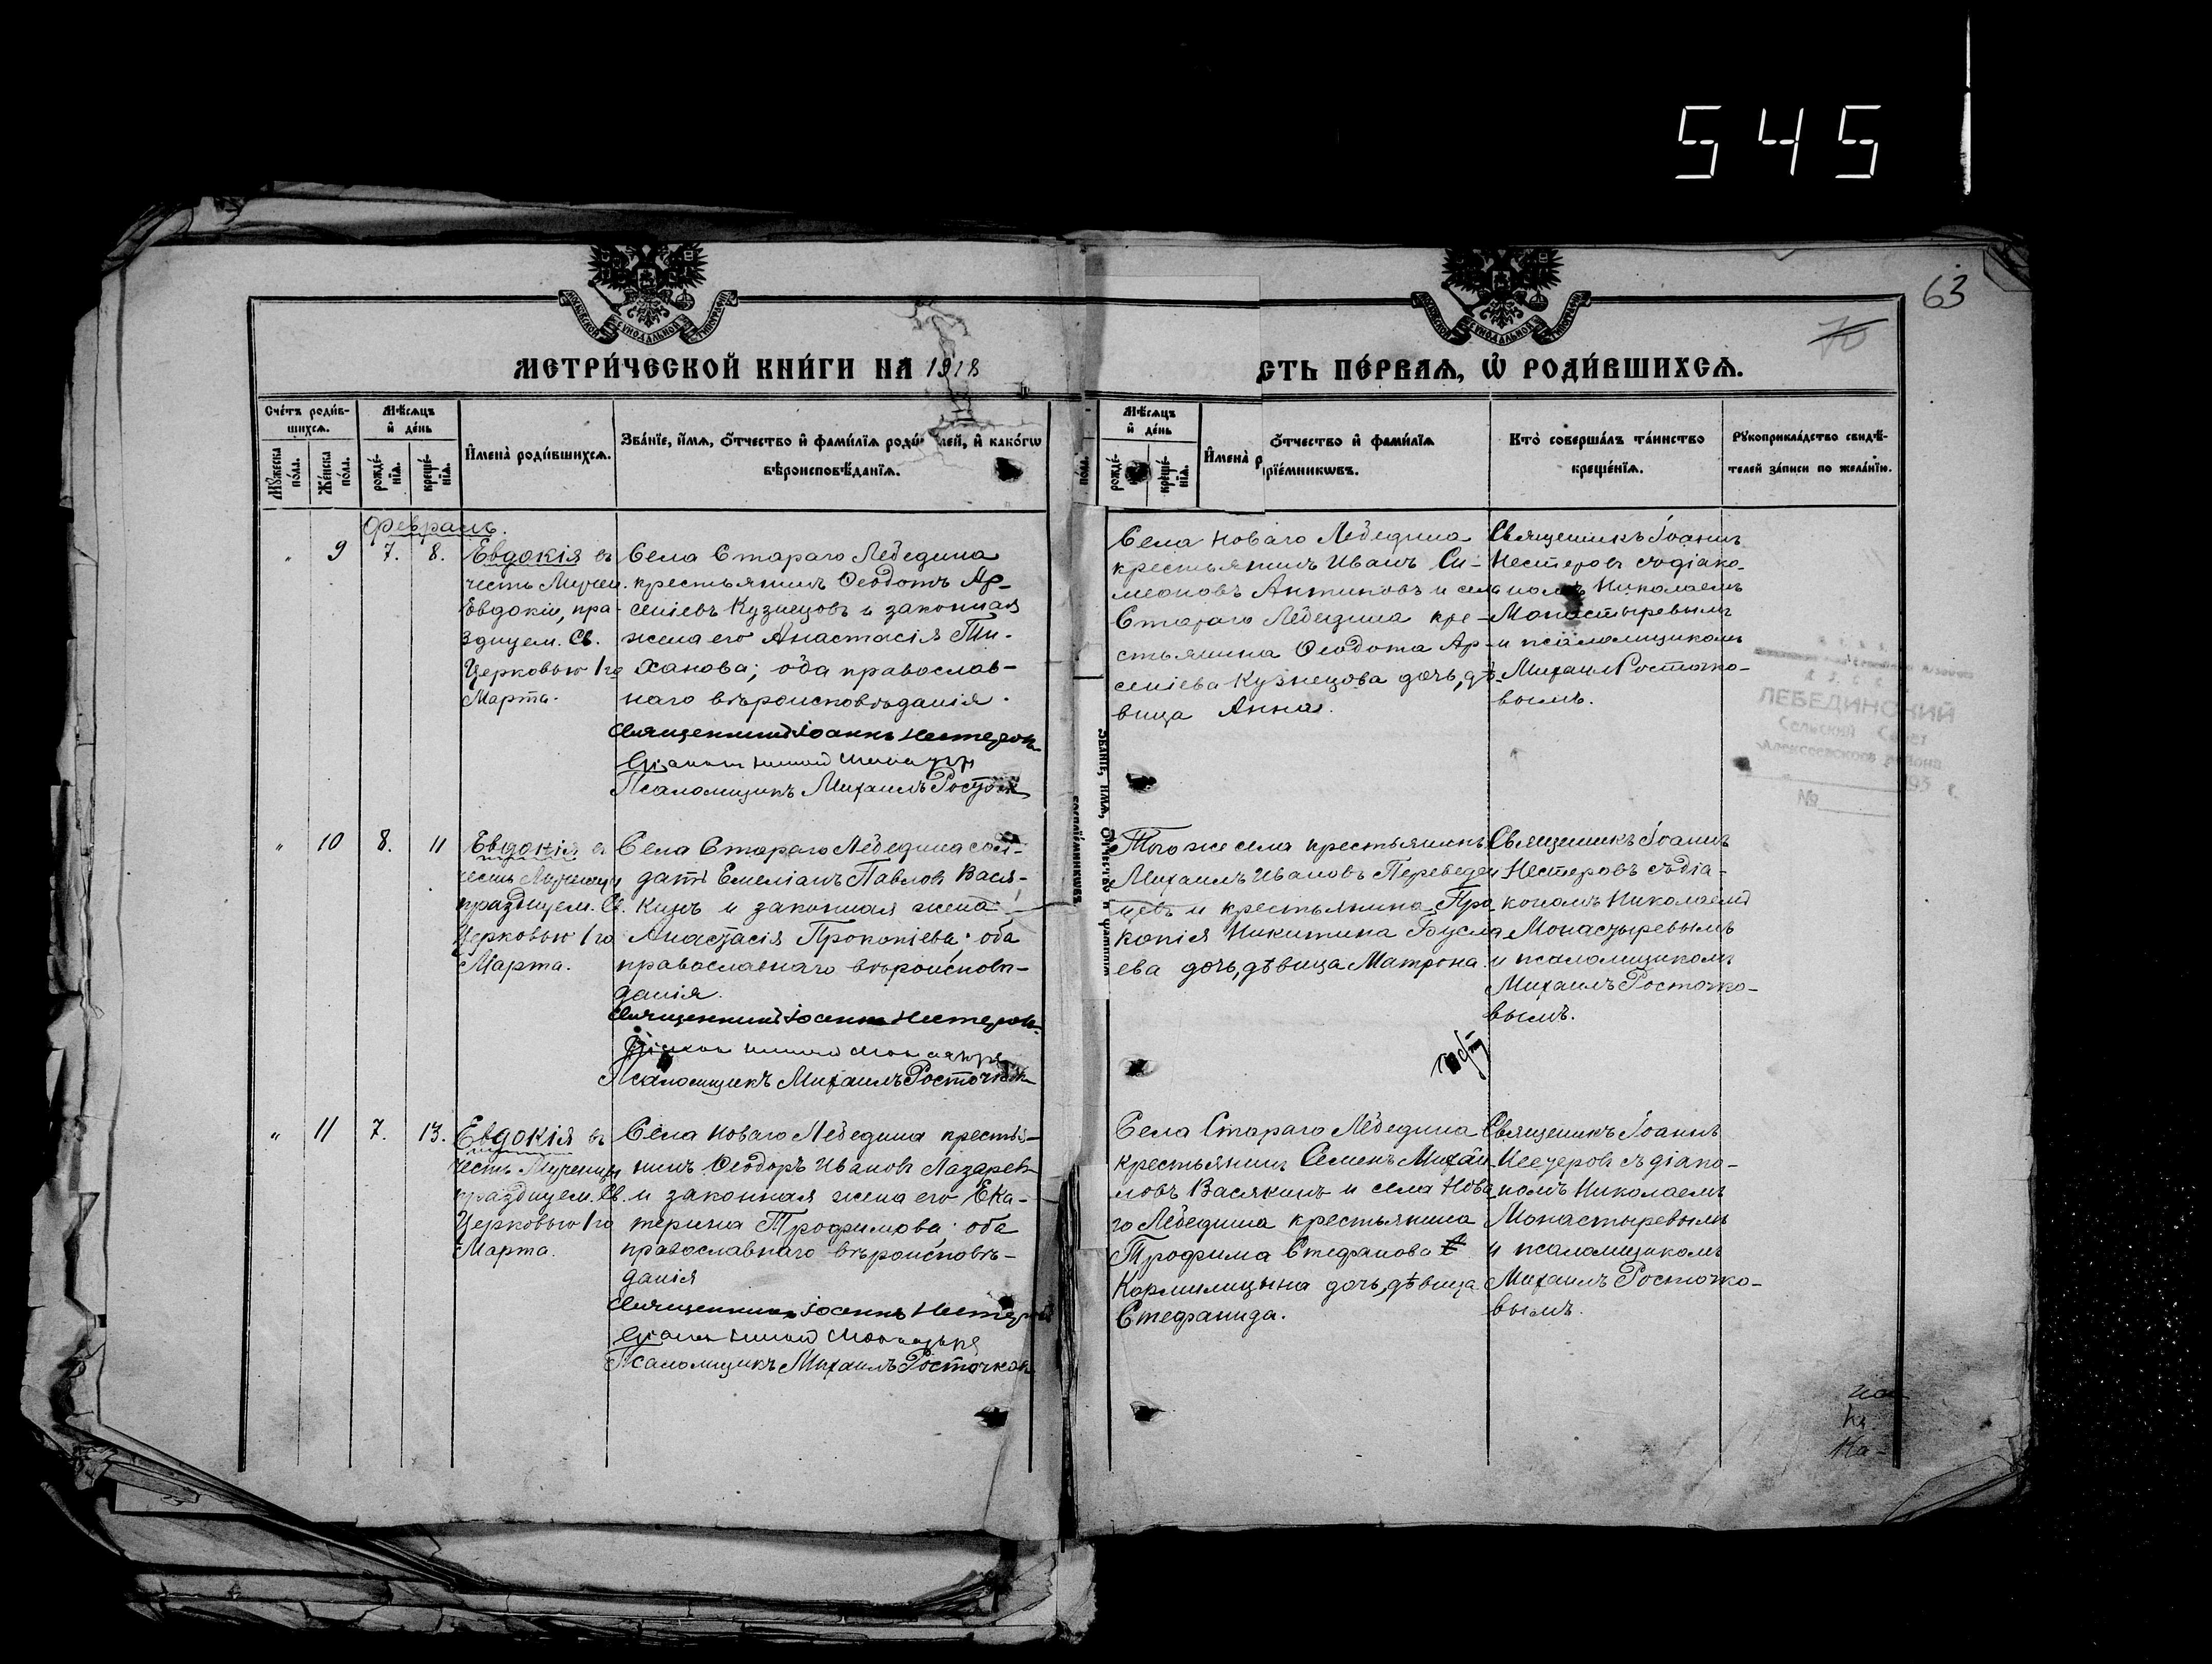 545
63
70
МЕТРИ́ЧЕСКОЙ КНИ́ГИ НА 1918
СТЬ ПЕ́РВАѦ, Ѡ҆ РОДИ́ВШИХСѦ.
Сче́тъ роди́в-
шихсѧ.
Мꙋ́жеска по́ла.
Же́нска по́ла.
Мѣ́сѧцъ
и҆ де́нь
рожде́-
нїѧ.
креще́-
нїѧ.
И҆мена̀ роди́вшихсѧ.
Зва́нїе, и҆́мѧ, ѻ҆́тчество и҆ фами́лїѧ роди́ лей, и҆ како́гѡ
вѣроисповѣ́данїѧ.
пола.
Мѣ́сѧцъ
и҆ де́нь
рожде́-
креще́-
нїѧ.
И҆мена̀ р
ѻ҆́тчество и҆ фами́лїѧ
прїе́мникѡвъ.
Кто̀ соверша́лъ та́инство
креще́нїѧ.
Рꙋкоприкла́дство свидѣ́-
телей за́писи по жела́нїю.
Февраль.
" 9 7. 8.
Евдокія въ
честь Мучен.
Евдокіи, пра-
зднуем. Св.
Церковью 1 го
Марта.
Села Стараго Лебедина
крестьянинъ Ѳеодотъ Ар-
сеніевъ Кузнецовъ и законная
жена его Анастасія Ти-
ханова; оба православ-
наго вѣроисповѣданія.
Священникъ Іоаннъ Нестеровъ
Псаломщикъ Михаилъ Росточк
Села Новаго Лебедина
крестьянинъ Иванъ Си-
меоновъ Антиповъ и села
Стараго Лебедина кре-
стьянина Ѳеодота Ар-
сеніева Кузнецова дочь, дѣ-
вица Анна.
Священникъ Іоаннъ
Нестеровъ съ діако-
номъ Николаемъ
Монастыревымъ
и псаломщикомъ
Михаил Росточко-
вымъ.
ЛЕБЕДИНСКИЙ
Сельский Совет
Алексеевского района
193 г.
№
" 10 8. 11
Евдокія въ
честь Мученицы
празднуем. Св.
Церковью 1 го
Марта.
Села Стараго Лебедина сол-
датъ Емеліанъ Павловъ Вася-
кинъ и законная жена
Анастасія Прокопіева; оба
православнаго вѣроисповѣ-
данія.
Священникъ Іоаннъ Нестеровъ
Псаломщикъ Михаилъ Росточковъ
Того же села крестьянинъ
Михаилъ Ивановъ Переведен-
цевъ и крестьянина Про-
копія Никитина Бусла-
ева дочь, дѣвица Матрона.
Священникъ Іоаннъ
Нестеровъ съ діа-
кономъ Николаемъ
Монастыревымъ
и псаломщикомъ
Михаилъ Росточко-
вымъ.
" 11 7. 13.
Евдокія въ
честь Мученицы
празднуем. Св.
Церковью 1 го
Марта.
Села Новаго Лебедина крестья-
нинъ Ѳеодоръ Ивановъ Лазаревъ
и законная жена его Ека-
терина Трофимова; оба
православнаго вѣроисповѣ-
данія
Священникъ Іоаннъ Нестеровъ
Псаломщикъ Михаилъ Росточковъ
Села Стараго Лебедина
крестьянинъ Семенъ Михаи-
ловъ Васякинъ и села Нова-
го Лебедина крестьянина
Трофима Стефанова
Кормилицына дочь, дѣвица
Стефанида.
Священникъ Іоаннъ
Нестеровъ съ діако-
номъ Николаемъ
Монастыревымъ
и псаломщикомъ
Михаилъ Росточко-
вымъ.
На-